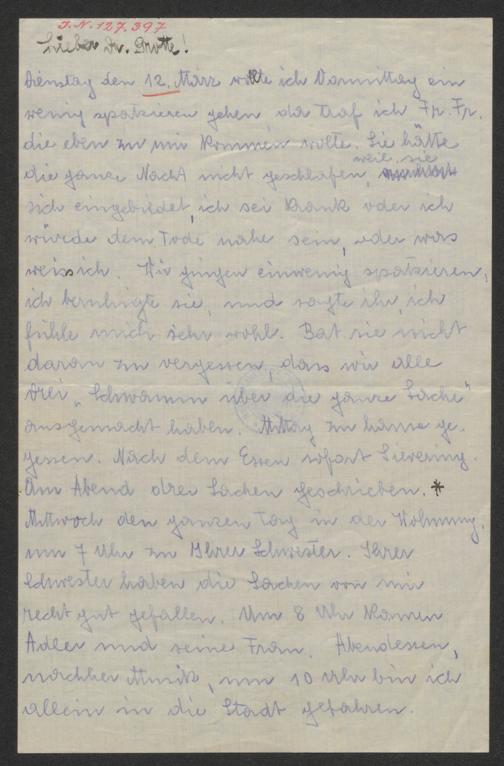 J.N. 127.397
Lieber Dr. Grotte!
Dienstag den 12. März wollte ich Vormittag ein
wenig spatzieren gehen da traf ich Fr. Fr.
die eben zu mir kommen wolte. Sie hätte
die ganze Nacht nicht geschlafen, weil sie
sich eingebiedet, ich sei krank oder ich
würde dem Tode nahe sein, oder was
weiss ich. Wir gingen einwenig spatzieren,
ich beruhigte sie, und sagte ihr, ich
fühle mich sehr wohl. Bat sie nicht
daran zu vergessen, dass wir alle
drei „Schwamm über die ganze Sache"
ausgemacht haben. Mittag zu hause ge-
gessen. Nach dem Essen sofort Sievering.
Am Abend drei Sachen geschrieben. *
Mittwoch den ganzen Tag in der Wohnung.
um 7 Uhr zu Ihrer Schwester. Ihrer
Schwester haben die Sachen von mir
recht gut gefallen. Um 8 Uhr kamen
Adler und seine Frau. Abendessen,
nachher Musik, um 10 Uhr bin ich
allein in die Stadt gefahren.